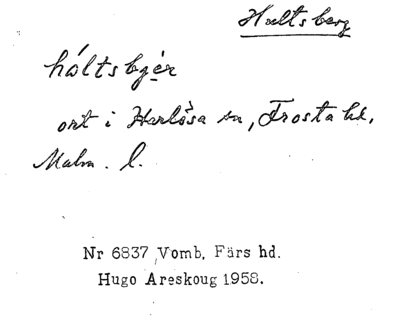 Hultsberg
hóltsbjèr
ort i Harlösa sn, Frosta hd,
Malm. l.
Nr 6837 Vomb, Färs hd.
Hugo Areskoug 1958.